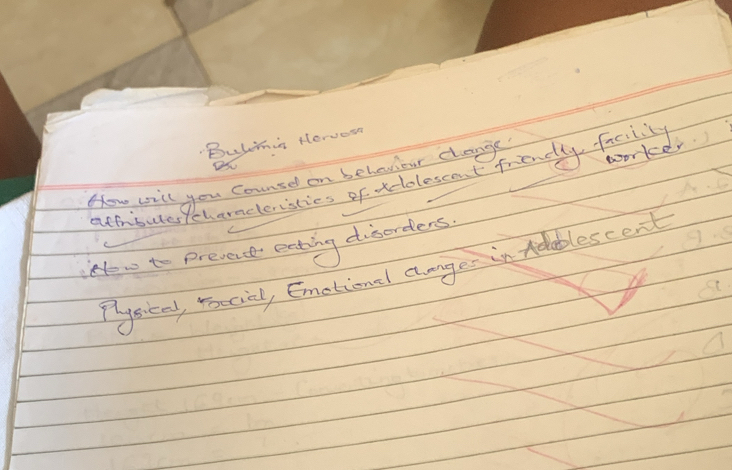 Bulimia Nervosa
Bu
How will you Counsel on behaviour change.
attributes/characteristics of Adolescent friendly facility
worker
How to prevent eating disorders.
Physical, Social, Emotional changes in Adolescent